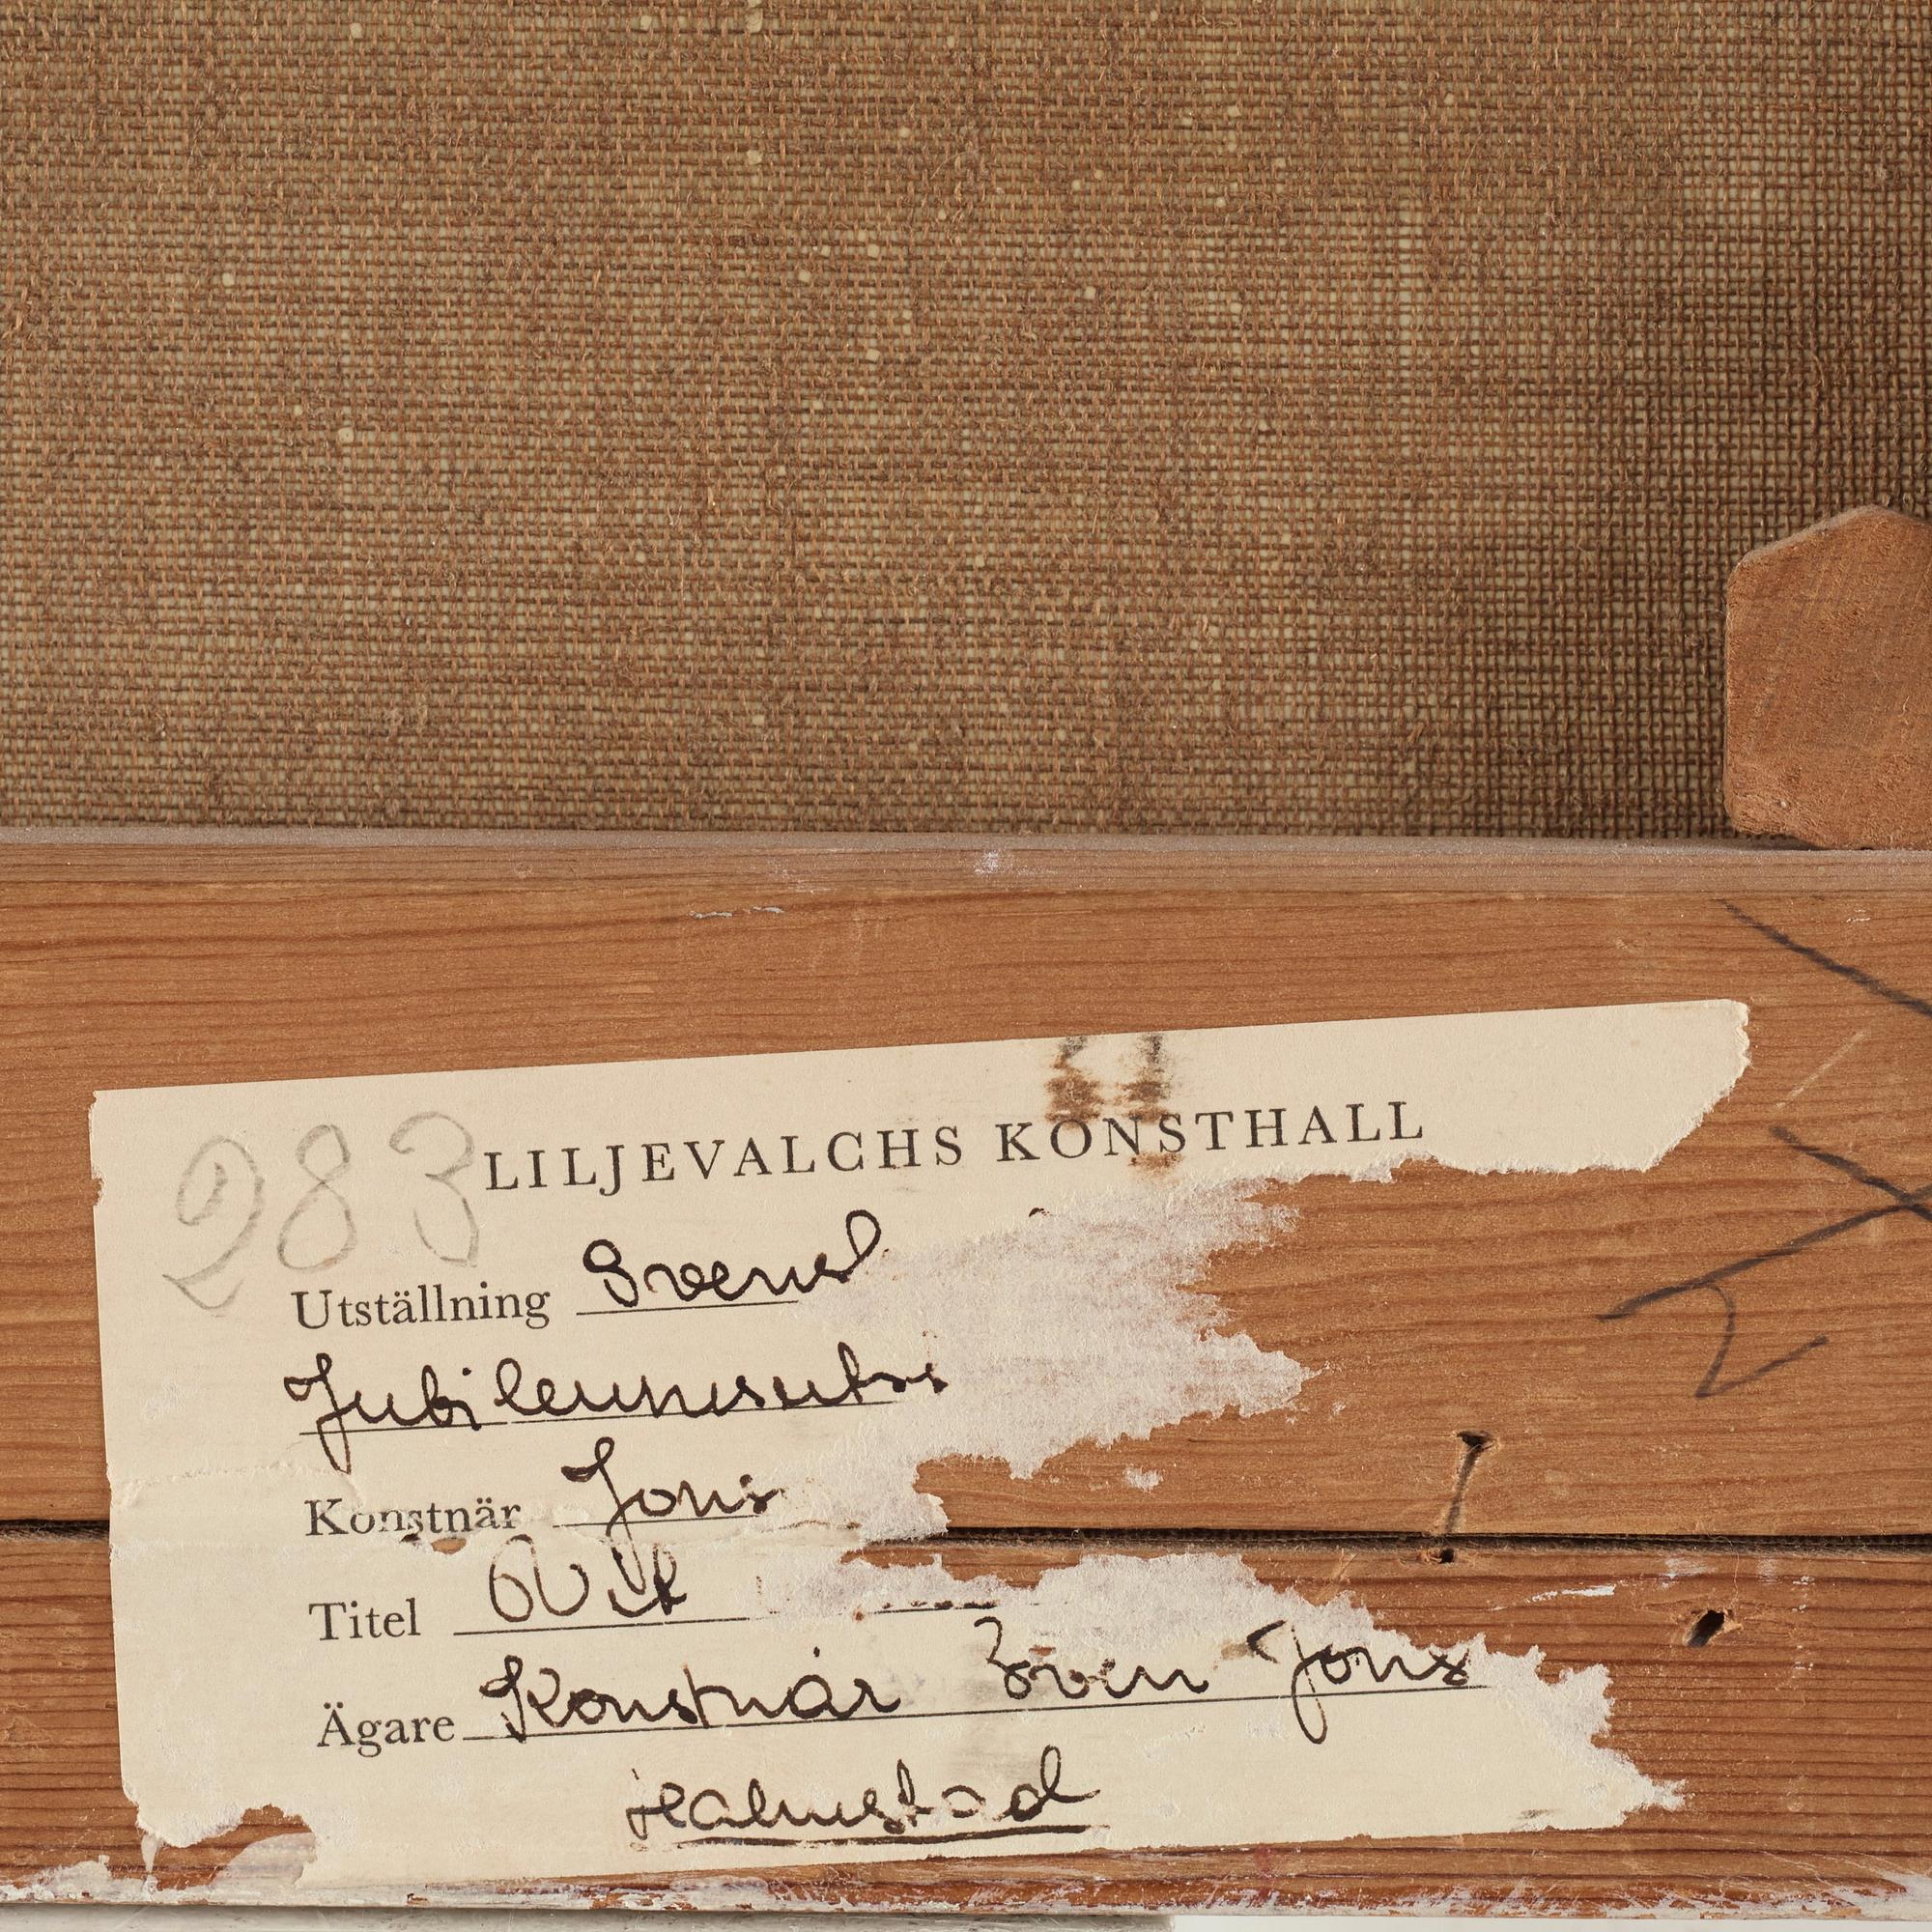 283 LILJEVALCHS KONSTHALL
Utställning Svens
Jubileumsuts
Konstnär Jons
Titel
Ägare Konstnär Sven Jons
Halmstad